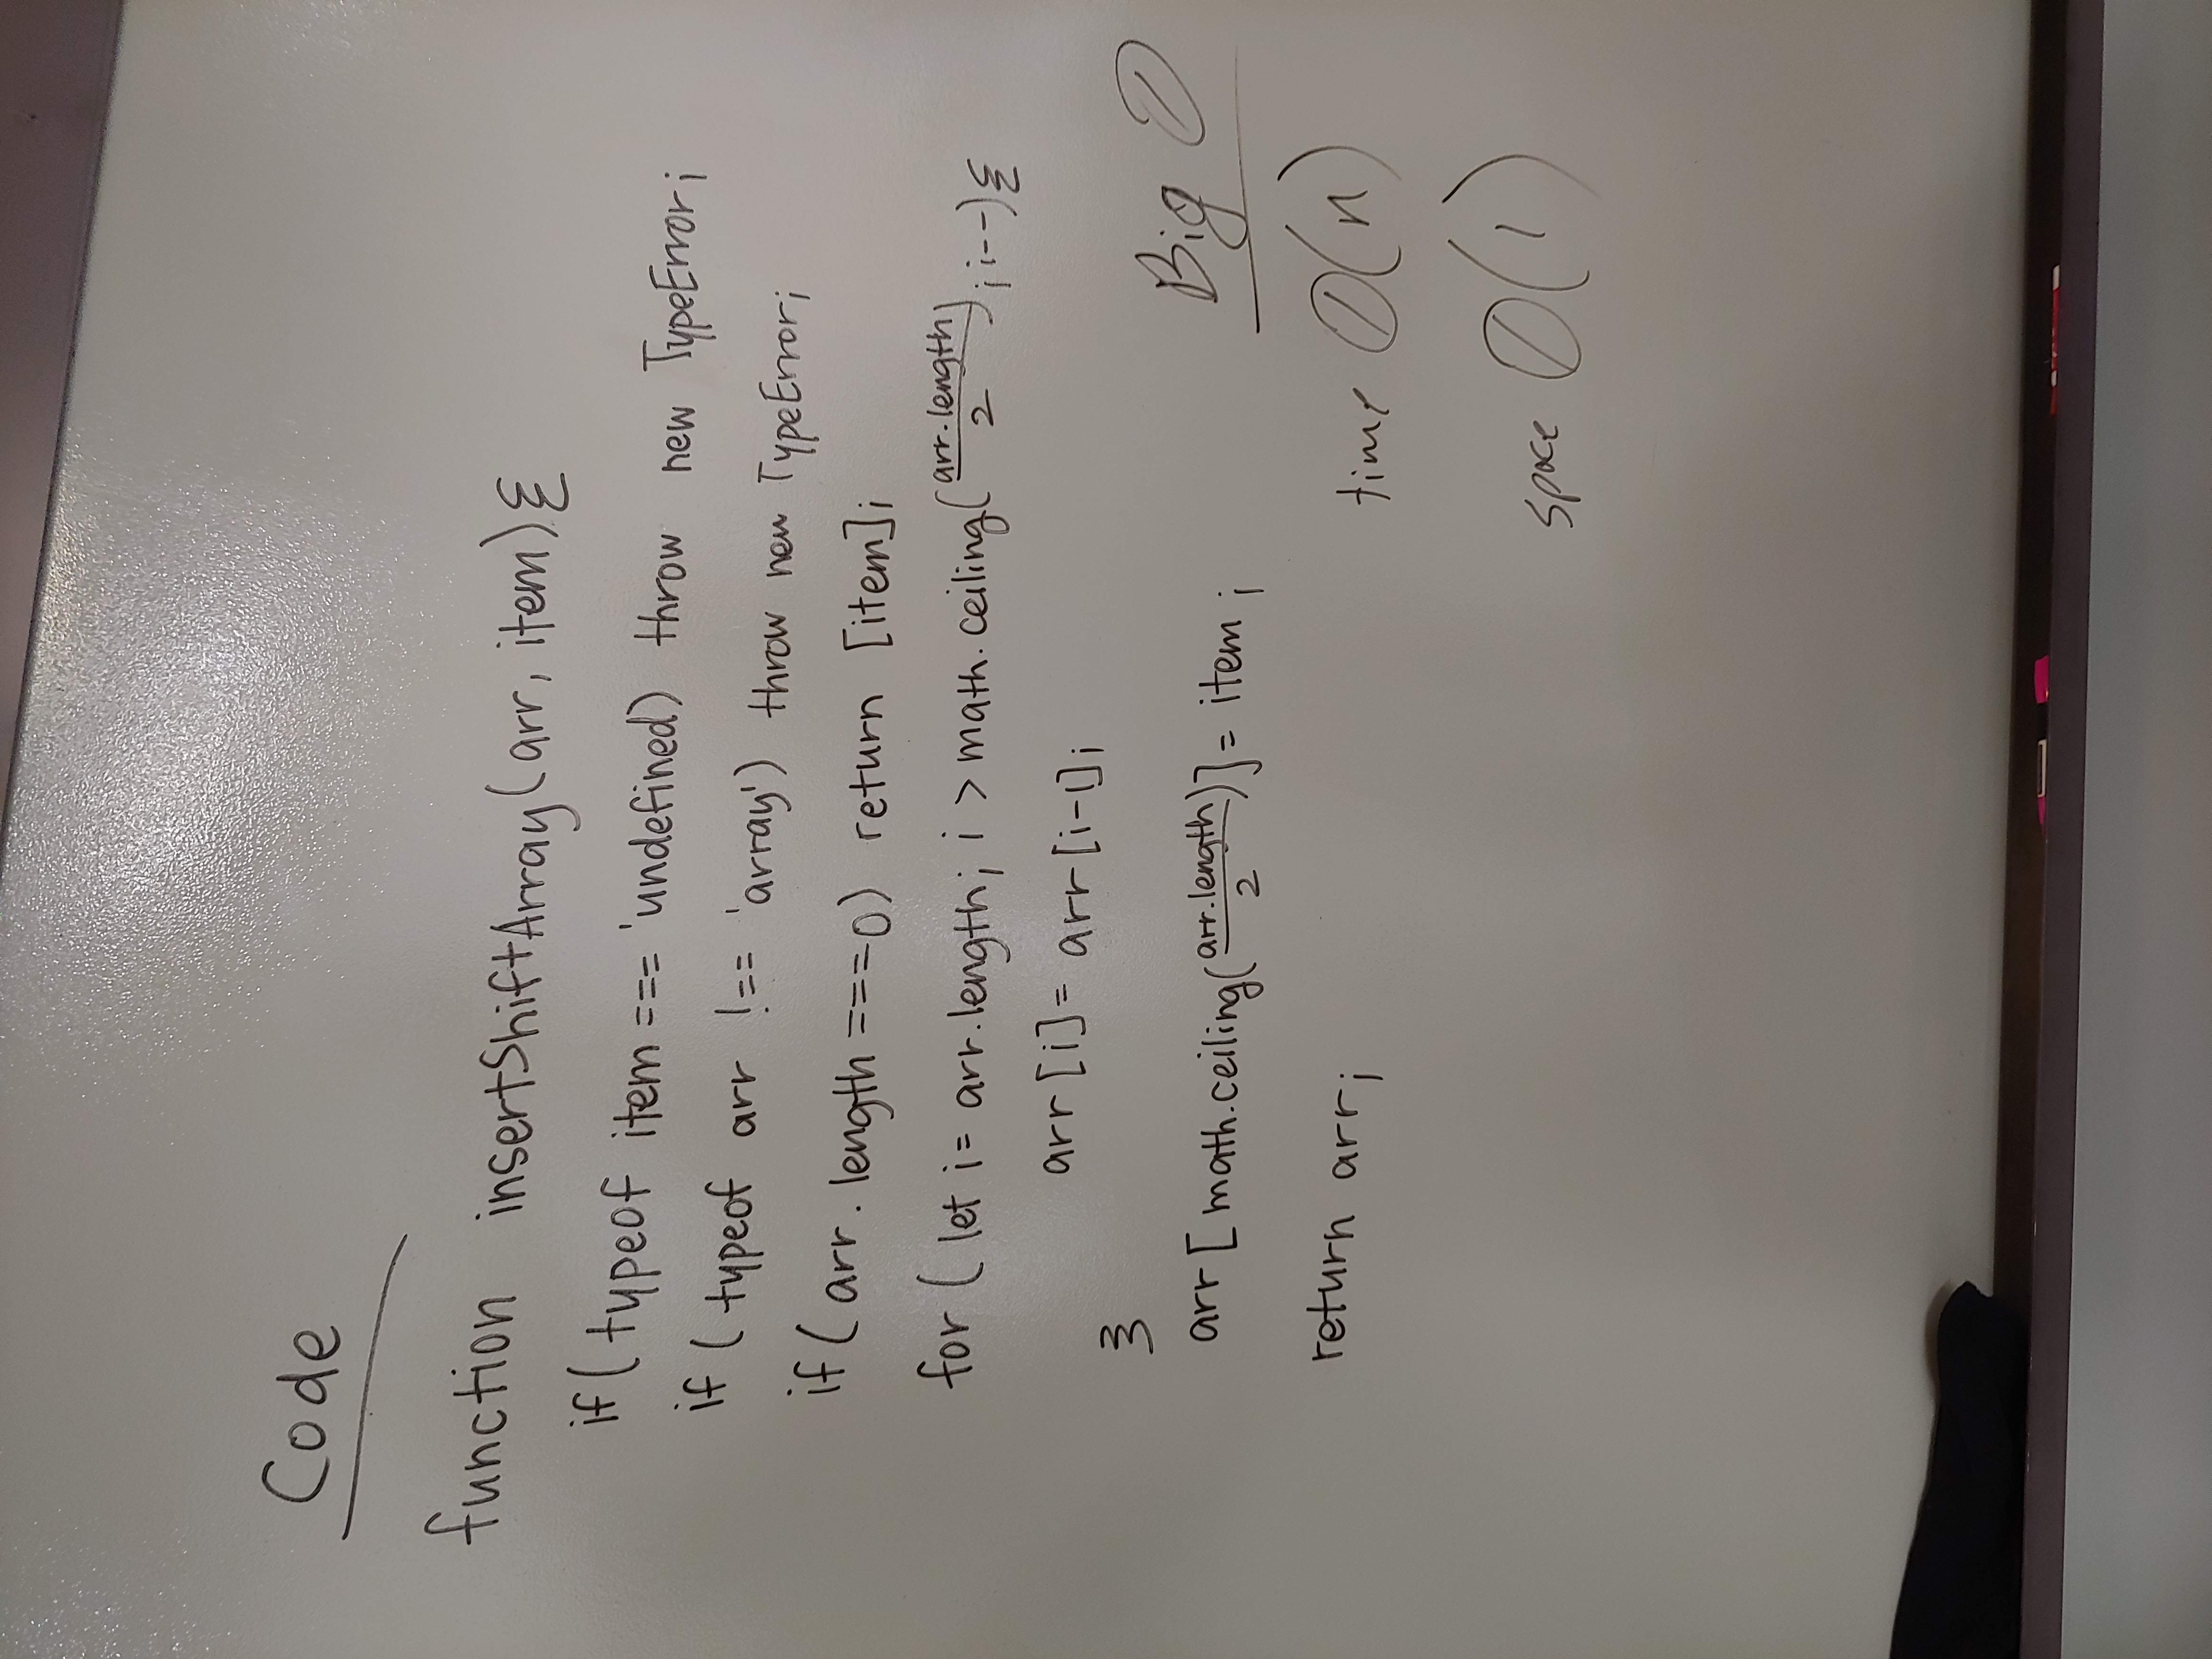 Code
function insertShiftArray(arr, item){
if(typeof item === 'undefined) throw new TypeError;
if(typeof arr !== 'array') throw new TypeError;
if(arr.length ===0) return [item];
for(let i= arr.length; i > math.ceiling(arr.length/2); i--){
arr[i]= arr[i-1];
}
arr[math.ceiling(arr.length/2)]= item;
return arr;
Big O
time O(n)
space O(1)